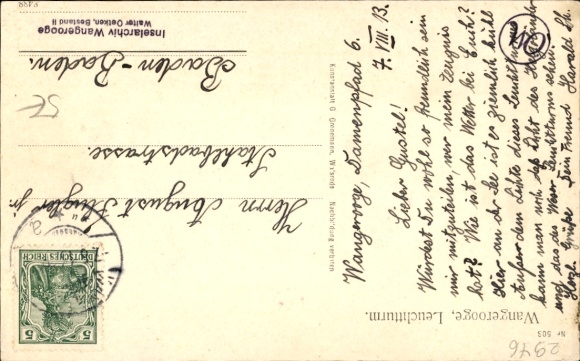 Wangerooge, Leuchtturm.
Nr 503
Wangerooge, Damenpfad 6.
7. VIII. 13.
Lieber Gustel!
Würdest Du wohl so freundlich sein
mir mitzuteilen, wer mein Zeugnis
hat? Wie ist das Wetter bei Euch?
Hier an der See ist es ziemlich kühl
Außer dem Lichte dieses Leuchtturms
kann man noch das Licht des
und das des Weser Leuchtturms sehen.
Herzl. Grüße Dein Freund Harald Sch.
Kunstanstalt G Gronemann, Nachbildung verboten
Herrn August Jr.
Stahlbadstrasse.
Baden-Baden.
DEUTSCHES REICH
5 5
Inselarchiv Wangerooge
Walter Oetken, Bestand II
2976